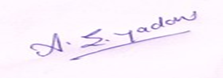 A. S. yadav